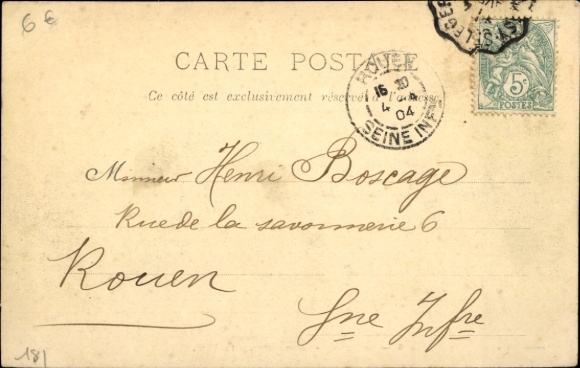 6 €
CARTE POSTALE
Ce côté est exclusivement réservé à l'adresse
ROUEN
16 30
4 - 4
04
SEINE INFRE
5c
POSTES
Monsieur Henri Boscage
Rue de la savonnerie 6
Rouen
Sne Infre
181